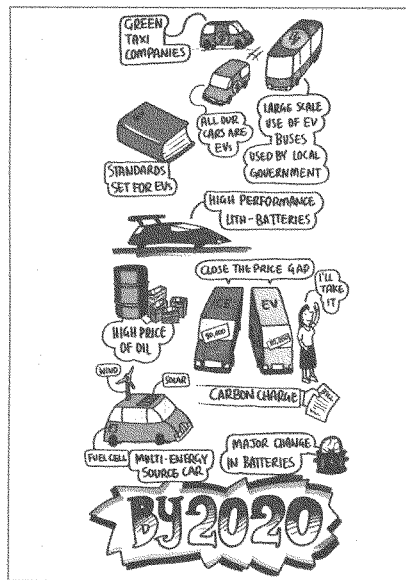 GREEN
TAXI
COMPANIES
ALL OUR
CARS ARE
EVs
LARGE SCALE
USE OF EV
BUSES
USED BY LOCAL
GOVERNMENT
STANDARDS
SET FOR EVs
HIGH PERFORMANCE
LITH-BATTERIES
CLOSE THE PRICE GAP
I'LL
TAKE
IT
EV
HIGH PRICE
OF OIL
WIND
SOLAR
CARBON CHARGE
BILL
FUEL CELL
MULTI-ENERGY
SOURCE CAR
MAJOR CHANGE
IN BATTERIES
BY 2020